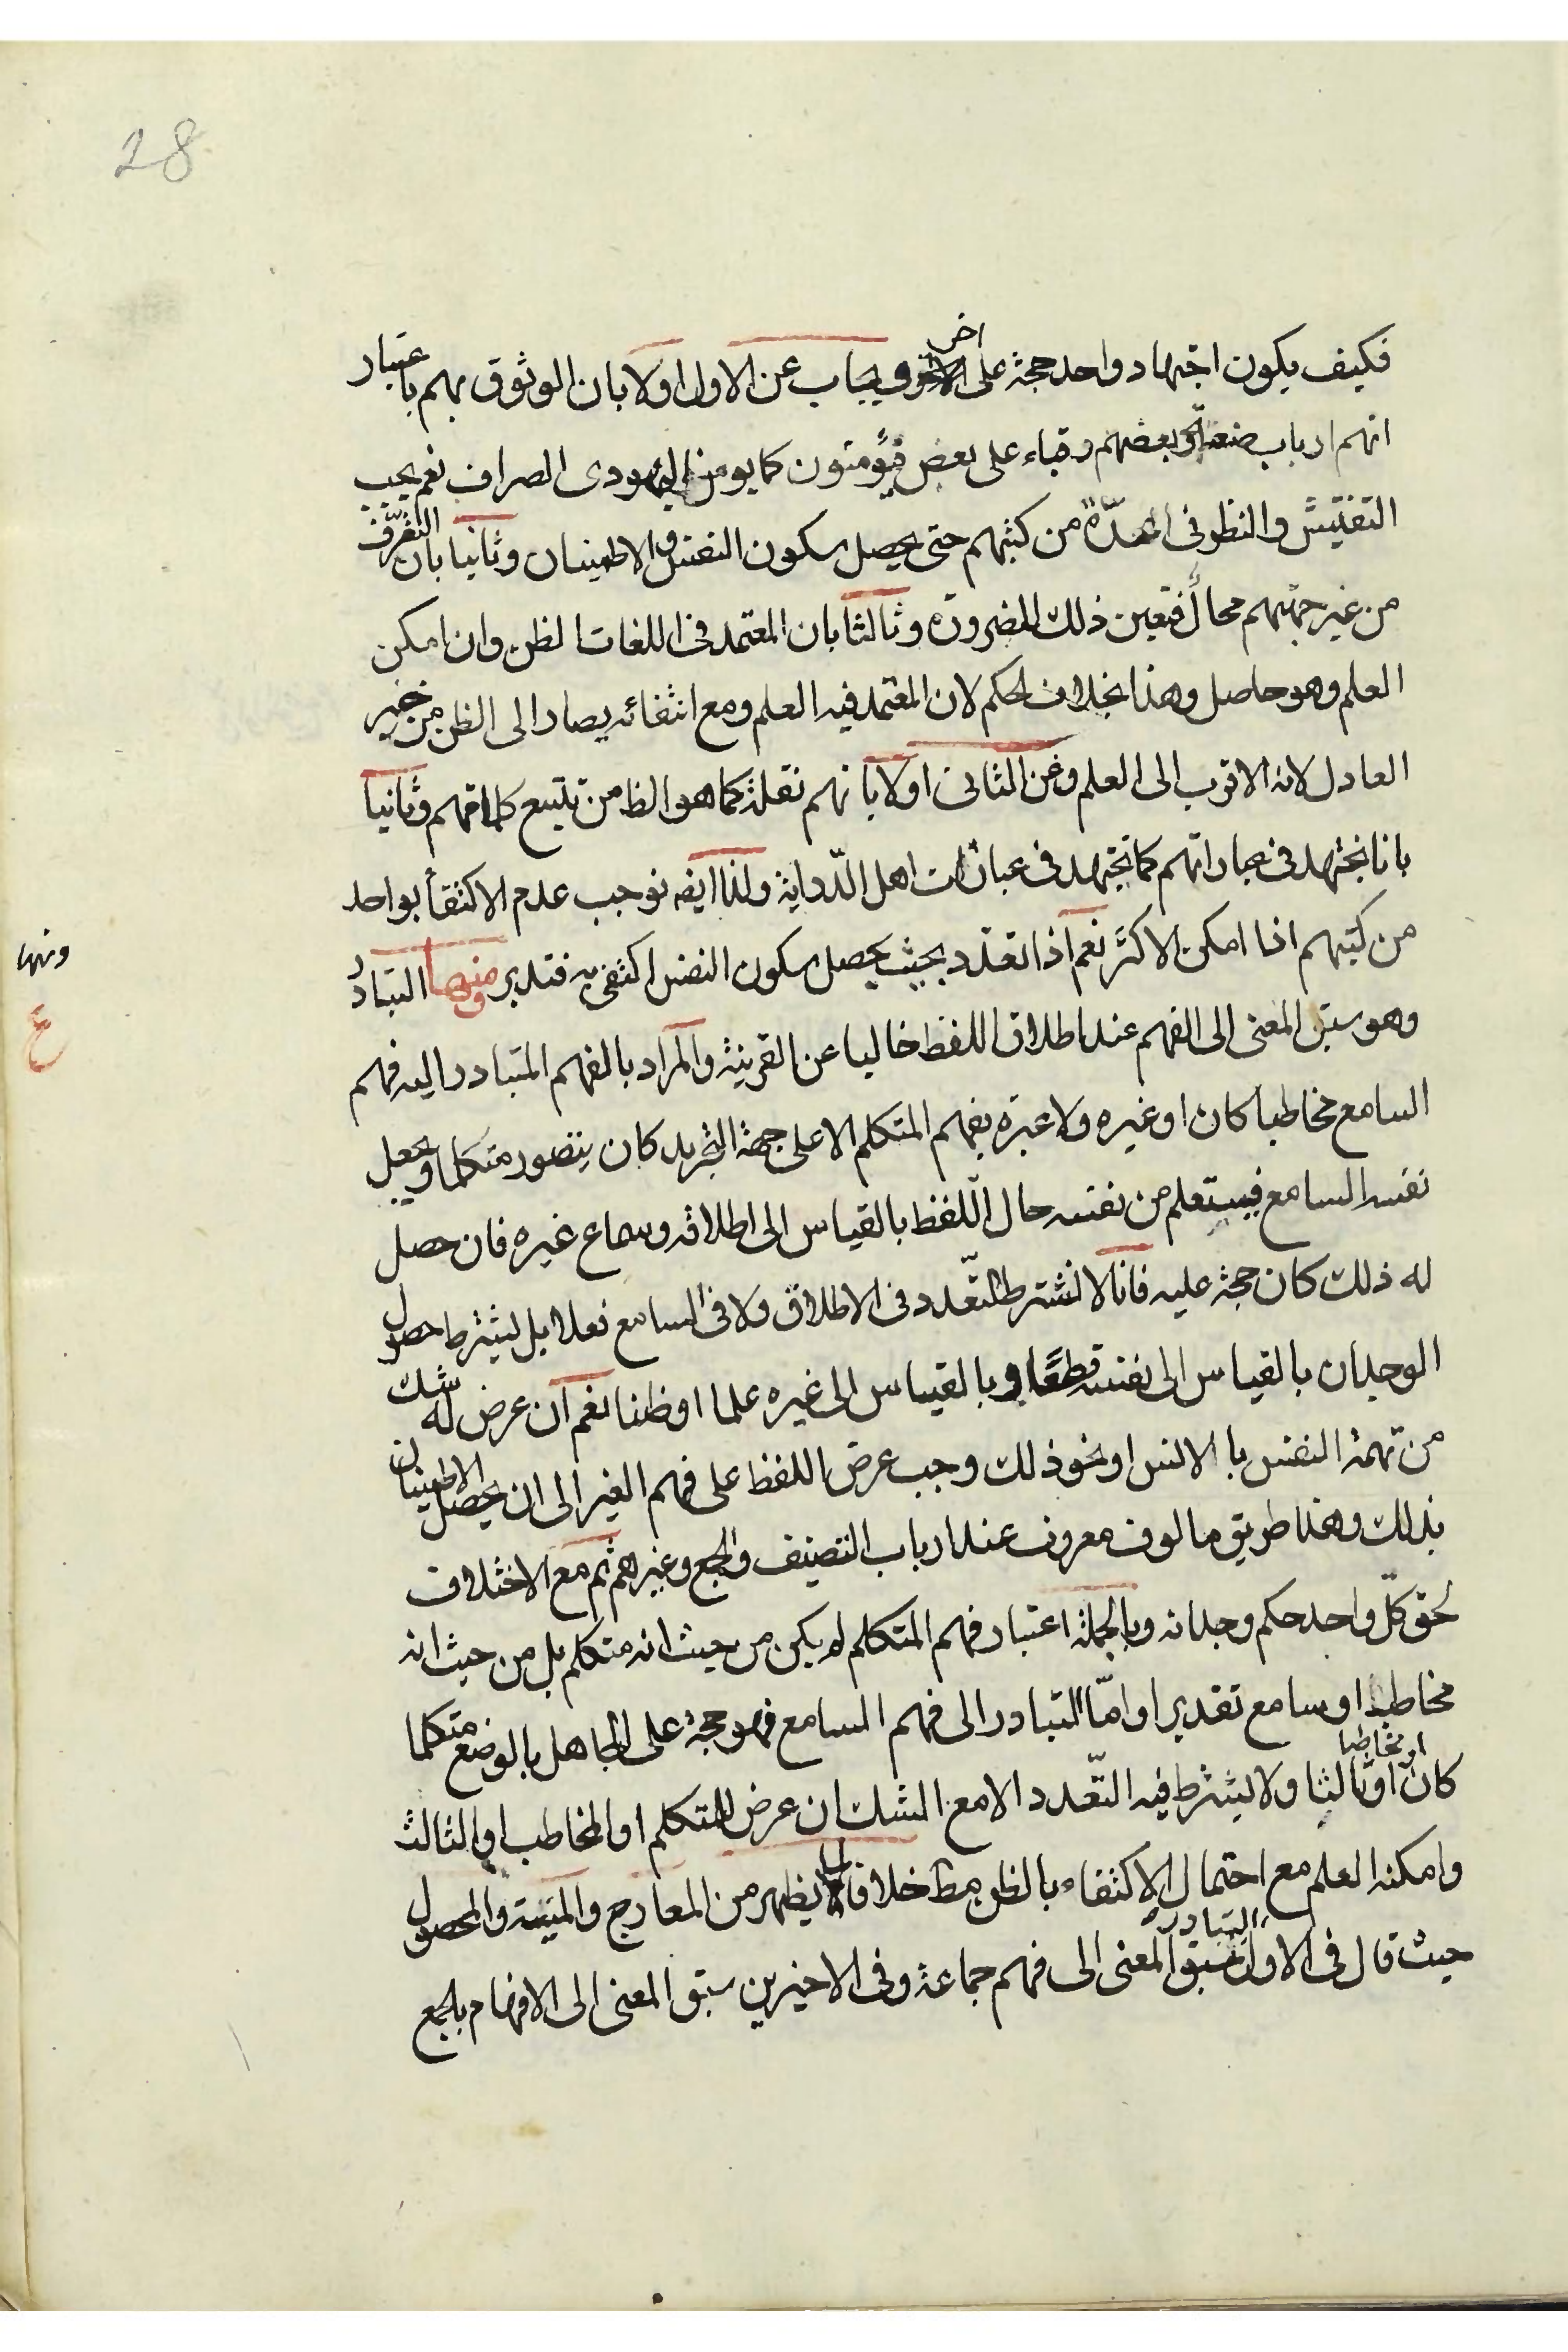 28
فكيف يكون اجتهاد واحد حجة على اخر ويجاب عن الاول اولا بان الوثوق بهم باعتبار
انهم ارباب صنعة وبعضهم رقباء على بعض فيؤمنون كما يومن اليهودى الصراف نعم يجب
التفتيش والنظر فى من كتبهم حتى يحصل سكون النفس والاطمينان وثانيا بان التعرّف
من غير جهتهم محال فتعين ذلك للضرورة وثالثا بان المعتمد فى اللغات الظن وان امكن
العلم وهو حاصل وهذا بخلاف الحكم لان المعتمد فيه العلم ومع انتفائه يصار الى الظن من خبر
العادل لانه الاقرب الى العلم وعن الثانى اولا بانهم نقلة كما هو الظا من تتبع كلامهم وثانيا
بانا نجتهد فى عباراتهم كما نجتهد فى عبارات اهل الدّراية ولذا ايضه نوجب عدم الاكتفأ بواحد
من كتبهم اذا امكن الاكثر نعم اذا تعدد بحيث يحصل سكون النفس اكتفى به فتدبر ومنها التبادر
وهو سبق المعنى الى الفهم عند اطلاق اللفظ خاليا عن القرينة والمراد بالفهم المتبادر اليه فهم
السامع مخاطبا كان او غيره ولا عبرة بفهم المتكلم الا على جهة التجريد كان يتصور متكلما ويجعل
نفسه السامع فيستعلم من نفسه حال اللفظ بالقياس الى اطلاقه وسماع غيره فان حصل
له ذلك كان حجة عليه فانا لا نشترط التعّدد فى الاطلاق ولا فى السامع فعلا بل يشترط حصول
الوجدان بالقياس الى نفسه قطعًا وبالقياس الى غيره علما او ظنا نعم ان عرض له شك
من تهمة النفس با الانس او نحو ذلك وجب عرض اللفظ على فهم الغير الى ان يحصل الاطمينان
بذلك وهذا طريق مالوف معروف عند ارباب التصنيف والجمع وغيرهم ثم مع الاختلاف
لحق كلّ واحد حكم وجدانه وبالجملة اعتبار فهم المتكلم لم يكن من حيث انه متكلم بل من حيث انه
مخاطب او سامع تقديرا وامّا التبادر الى فهم السامع فهو حجة على الجاهل بالوضع متكلما
كان او مخاطبا او ثالثا ولا يشترط فيه التعّدد الا مع الشك ان عرض للمتكلم او المخاطب او الثالث
وامكنه العلم مع احتمال الاكتفاء بالظن مط خلافا لما يظهر من المعارج والمنية والمحصول
حيث قال فى الاول التبادر سبق المعنى الى فهم جماعة وفى الاخيرين سبق المعنى الى الافهام بلجمع
ومنها
ع